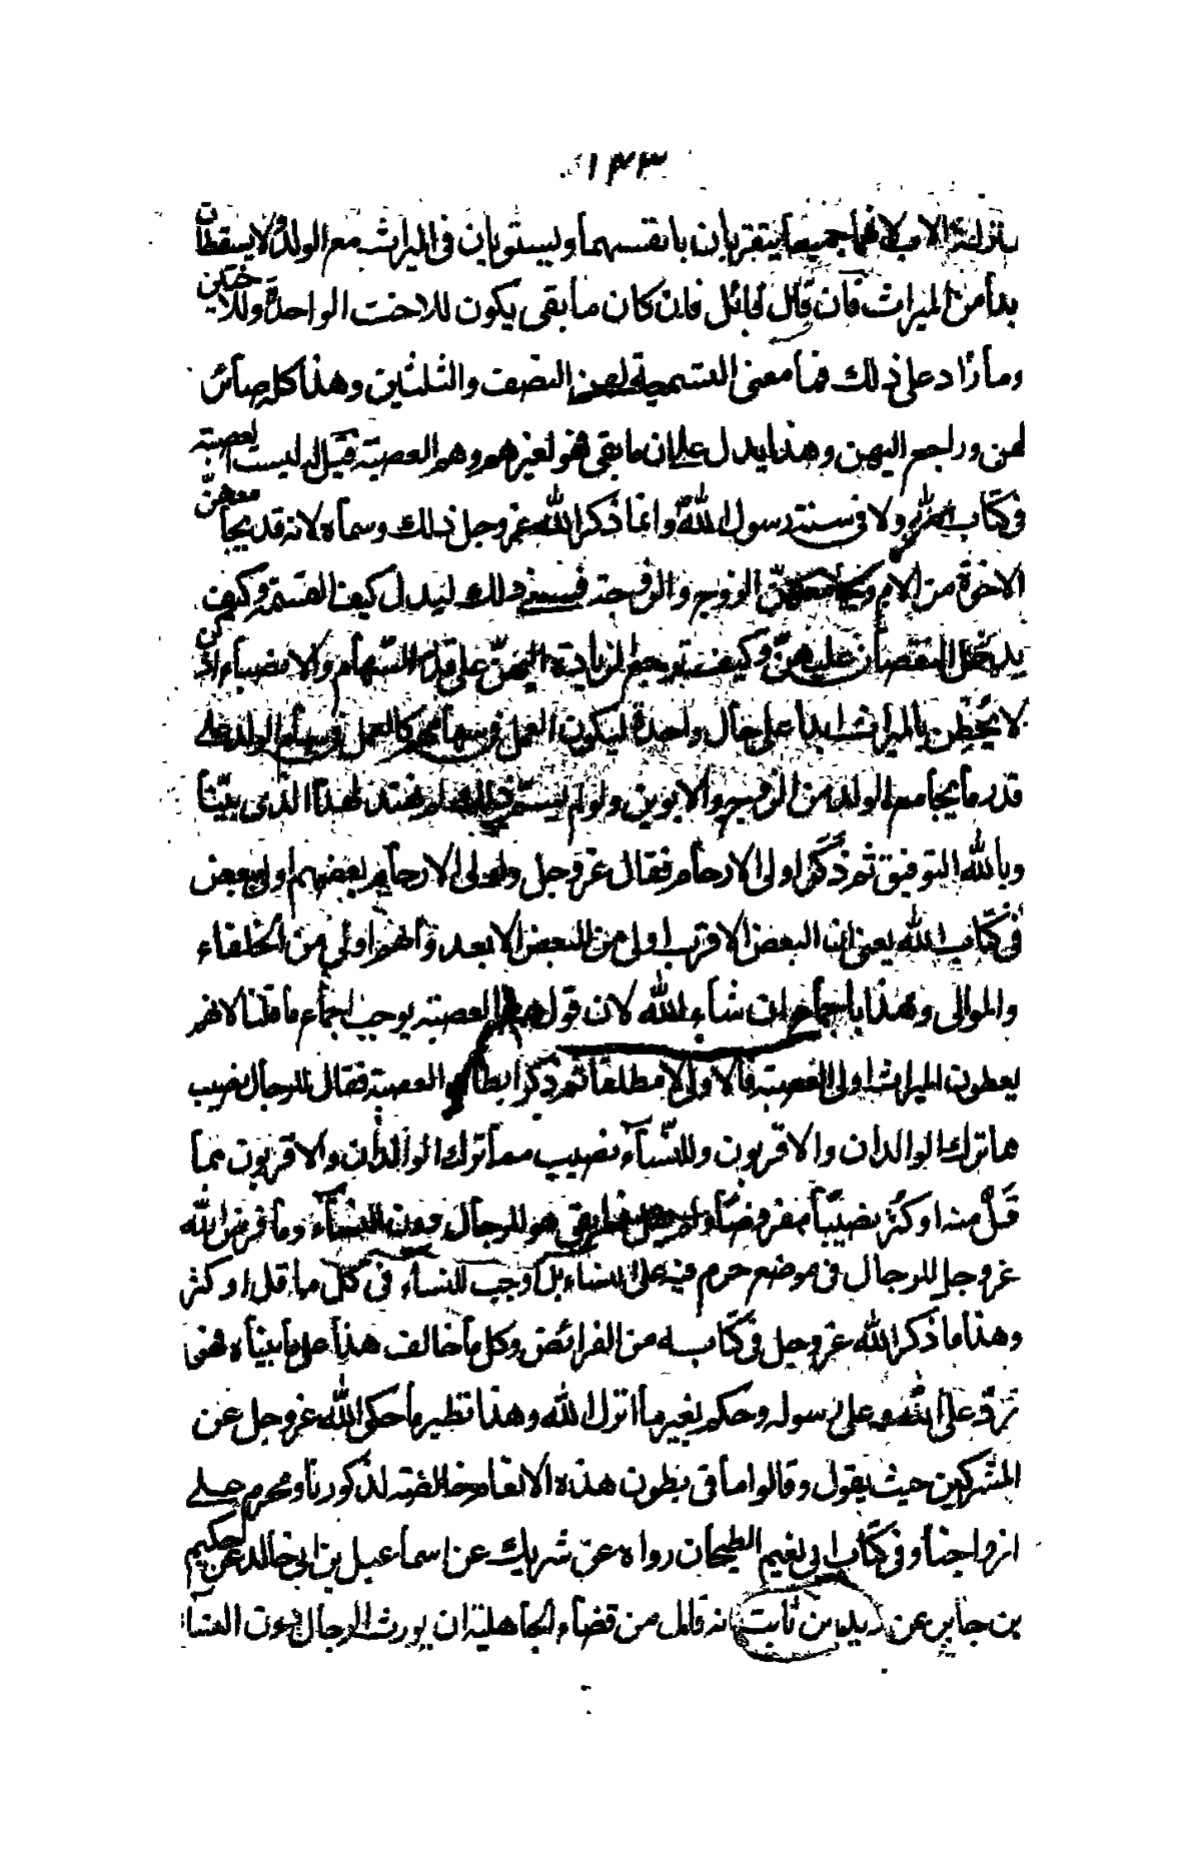 ١٤٣
بمنزلة الاب لانهما جميعا يتقربان بانفسهما ويستويان فى الميراث مع الولد لا يسقطان
بدأ من الميراث فان قال قائل فان كان ما بقى يكون للاخت الواحدة وللاختين
وما زاد على ذلك فما معنى التسمية لهن النصف والثلثين وهذا كله صائر
لهن وراجع اليهن وهذا يدل على ان ما بقى فهو لغيرهم وهم العصبة قيل له ليست العصبة
فى كتاب الله ولا فى سنة رسول الله وانما ذكر الله عز وجل ذلك وسماه لانه قد يجامعهن
الاخوة من الام الزوج والزوجة فسمى ذلك ليدل كيف القسمة وكيف
يدخل النقصان عليهن وكيف ترجع الزيادة اليهن على قدر السهام والانصباء اذ كن
لا يحطن بالميراث ابدا على حال واحدة ليكون العمل فى سهامهم كالعمل فى سهام الولد على
قدر ما يجامع الولد من الزوج والابوين ولو لم يسم ذلك لم يهتد لهذا الذى بيّنا
وبالله التوفيق ثم ذكر اولى الارحام فقال عز وجل واولى الارحام بعضهم اولى ببعض
فى كتاب الله يعنى ان البعض الاقرب اولى من البعض الابعد وانهم اولى من الخلفاء
والموالى وهذا باجماع ان شاء الله لان قولهم بالعصبة يوجب اجماع ما قلنا لانهم
يعطون الميراث اولى العصبة فالاولى لا مطلقا ثم ذكر ابطال العصبة فقال للرجال نصيب
مما ترك الوالدان والاقربون وللنساء نصيب مما ترك الوالدان والاقربون مما
قلّ منه او كثر نصيبًا مفروضًا ولم يقل فما بقى هو للرجال دون النساء وما فرض الله
عز وجل للرجال فى موضع حرم فيه على النساء بل اوجب للنساء فى كل ما قل او كثر
وهذا ما ذكر الله عز وجل فى كتابه من الفرائض وكل ما خالف هذا على ما بيناه فهى
تردّ على الله وعلى رسوله وحكم بغير ما انزل الله وهذا نظير ما حكى الله عز وجل عن
المشركين حيث يقول وقالوا ما فى بطون هذه الانعام خالصة لذكورنا ومحرم على
ازواجنا وفى كتاب ابى نعيم الطحان رواه عن شريك عن اسماعيل بن ابى خالد عن حكيم
بن جابر عن زيد بن ثابت انه قال من قضاء الجاهلية ان يورث الرجال دون النساء